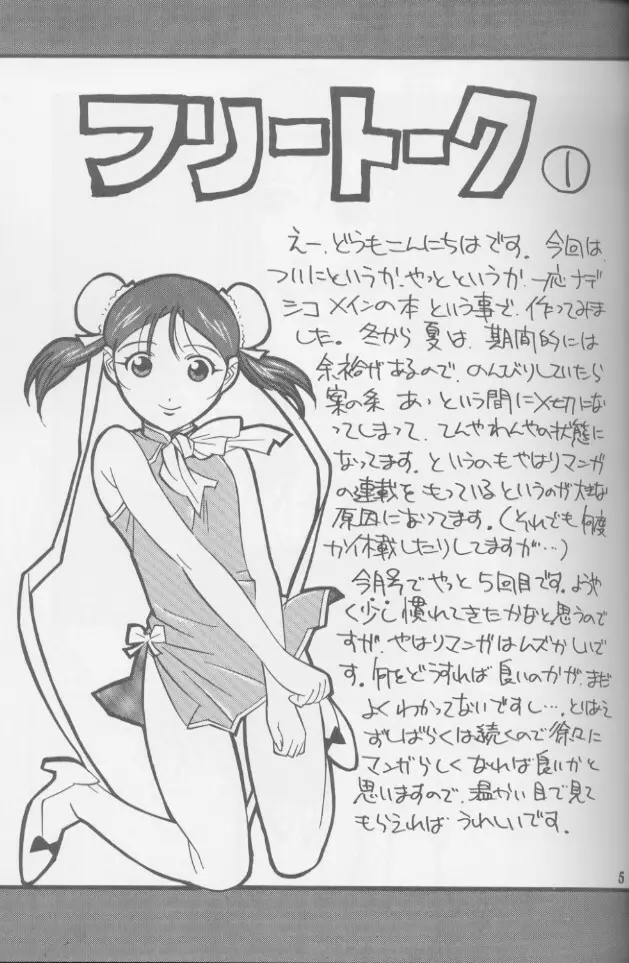 フリートーク ①
えー、どうもこんにちはです。今回は、
ついにというか、やっとというか、一応ナデ
シコメインの本という事で、作ってみま
した。冬から夏は、期間的には
余裕があるので、のんびりしていたら
案の条、あっという間に〆切にな
ってしまって、てんやわんやの状態に
なってます。というのもやはりマンガ
の連載をもっているというのが大きな
原因になってます。(それでも何度
か休載したりしてますが…)
今月号でやっと5回目です。ようや
く少し慣れてきたかなと思うので
すが、やはりマンガはムズかしいで
す。何をどうすれば良いのかが、まだ
よくわかってないですし…、とはいえ
ずしばらくは続くので徐々に
マンガらしくなれば良いかと
思いますので、温かい目で見て
もらえれば うれしいです。
5